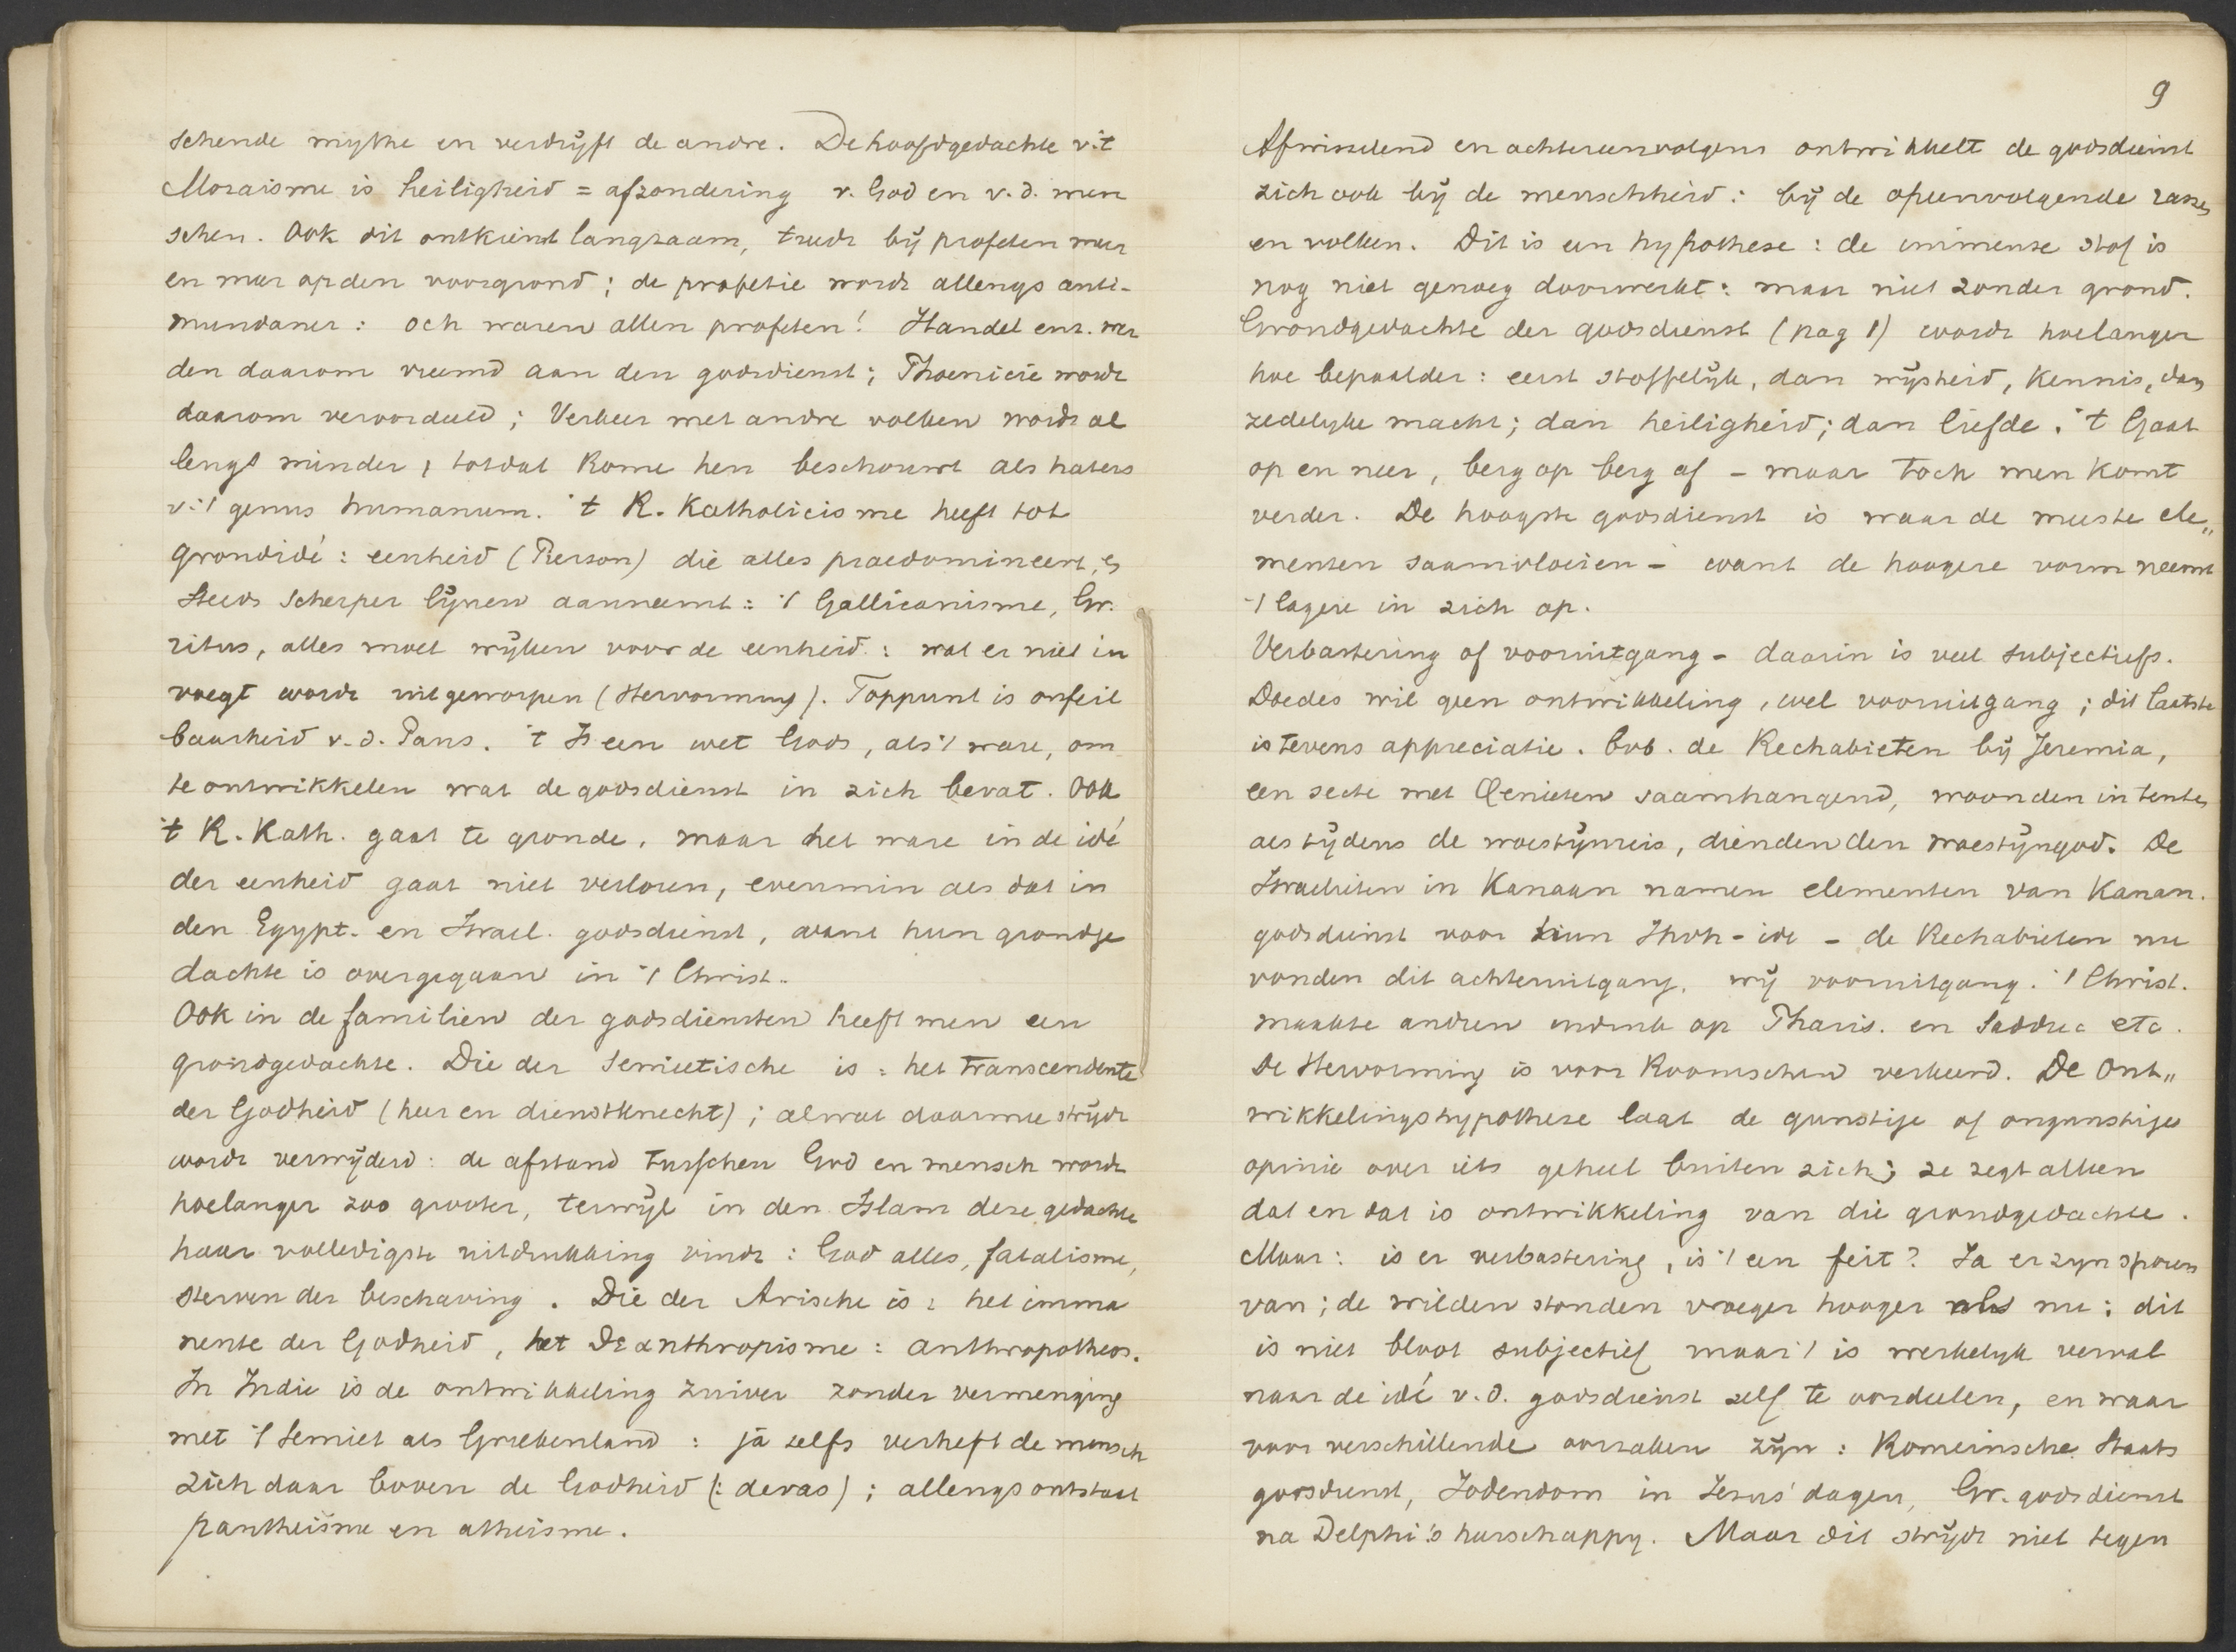 schende mythe en verdrijft de andre. De hoofdgedachte v. 't
Mozaisme is heiligheid = afzondering v. God en v. d. men
schen. Ook dit ontkiemt langzaam, treedt bij profeten meer
en meer op den voorgrond; de profetie wordt allengs anti-
mundaner: och waren allen profeten! Handel enz. wer
den daarom vreemd aan den godsdienst; Phoenicie wordt
daarom veroordeeld; Verkeer met andre volken wordt al
lengs minder, totdat Rome hen beschouwt als haters
v. 't genus humanum. 't R. Katholicisme heeft tot
grondidé: eenheid (Pierson) die alles praedomineert, en
steeds scherper lijnen aanneemt: 't Gallicanisme, Gr.
ritus, alles moet wijken voor de eenheid: wat er niet in
voegt wordt uitgeworpen (Hervorming). Toppunt is onfeil
baarheid v. d. Paus. 't Is een wet Gods, als 't ware, om
te ontwikkelen wat de godsdienst in zich bevat. Ook
't R. Kath. gaat te gronde, maar het ware in de idé
der eenheid gaat niet verloren, evenmin als dat in
den Egypt. en Israel. godsdienst, want hun grondge
dachte is overgegaan in 't Christ..
Ook in de familien der godsdiensten heeft men een
grondgedachte. Die der Semietische is: het transcendente
der Godheid (heer en dienstknecht); alwat daarmee strijdt
wordt verwijderd: de afstand tusschen God en mensch wordt
hoelanger zoo grooter, terwijl in den Islam deze gedachte
haar volledigste uitdrukking vindt: God alles, fatalisme,
sterven der beschaving. Die der Arische is: het imma
nente der Godheid, het Deanthropisme: anthropotheos.
In Indie is de ontwikkeling zuiver zonder vermenging
met 't Semiet als Griekenland: ja zelfs verheft de mensch
zich daar boven de Godheid (: devas); allengs ontstaat
pantheisme en atheisme.
9
Afwisselend en achtereenvolgens ontwikkelt de godsdienst
zich ook bij de menschheid: bij de opeenvolgende rassen
en volken. Dit is een hypothese: de immense stof is
nog niet genoeg doorwerkt: maar niet zonder grond.
Grondgedachte der godsdienst (pag 1) wordt hoelanger
hoe bepaalder: eerst stoffelijk, dan wijsheid, kennis, dan
zedelyke macht; dan heiligheid; dan liefde. 't Gaat
op en neer, berg op berg af - maar toch men komt
verder. De hoogste godsdienst is waar de meeste ele„
menten saamvloeien - want de hoogere vorm neemt
't lagere in zich op.
Verbastering of vooruitgang - daarin is veel subjectiefs.
Doedes wil geen ontwikkeling, wel vooruitgang; dit laatste
is tevens appreciatie. bvb. de Rechabieten bij Jeremia,
een secte met Qenieten saamhangend, woonden in tenten
als tijdens de woestijnreis, dienden den woestijngod. De
Israelieten in Kanaan namen elementen van Kanan.
godsdienst voor hun Jhvh-idé - de Rechabieten nu
vonden dit achteruitgang, wij vooruitgang. 't Christ.
maakte andren indruk op Pharis. en Sadduc etc.
De Hervorming is voor Roomschen verkeerd. De Ont„
wikkelingshypothese laat de gunstige of ongunstige
opinie over iets geheel buiten zich; ze zegt alleen
dat en dat is ontwikkeling van die grondgedachte.
Maar: is er verbastering, is 't een feit? Ja er zyn sporen
van; de wilden stonden vroeger hooger als nu: dit
is niet bloot subjectief maar 't is werkelyk verval
naar de idé v. d. godsdienst zelf te oordeelen, en waar
voor verschillende oorzaken zijn: Romeinsche Staats
godsdienst, Jodendom in Jesus' dagen, Gr. godsdienst
na Delphi's heerschappy. Maar dit strijdt niet tegen